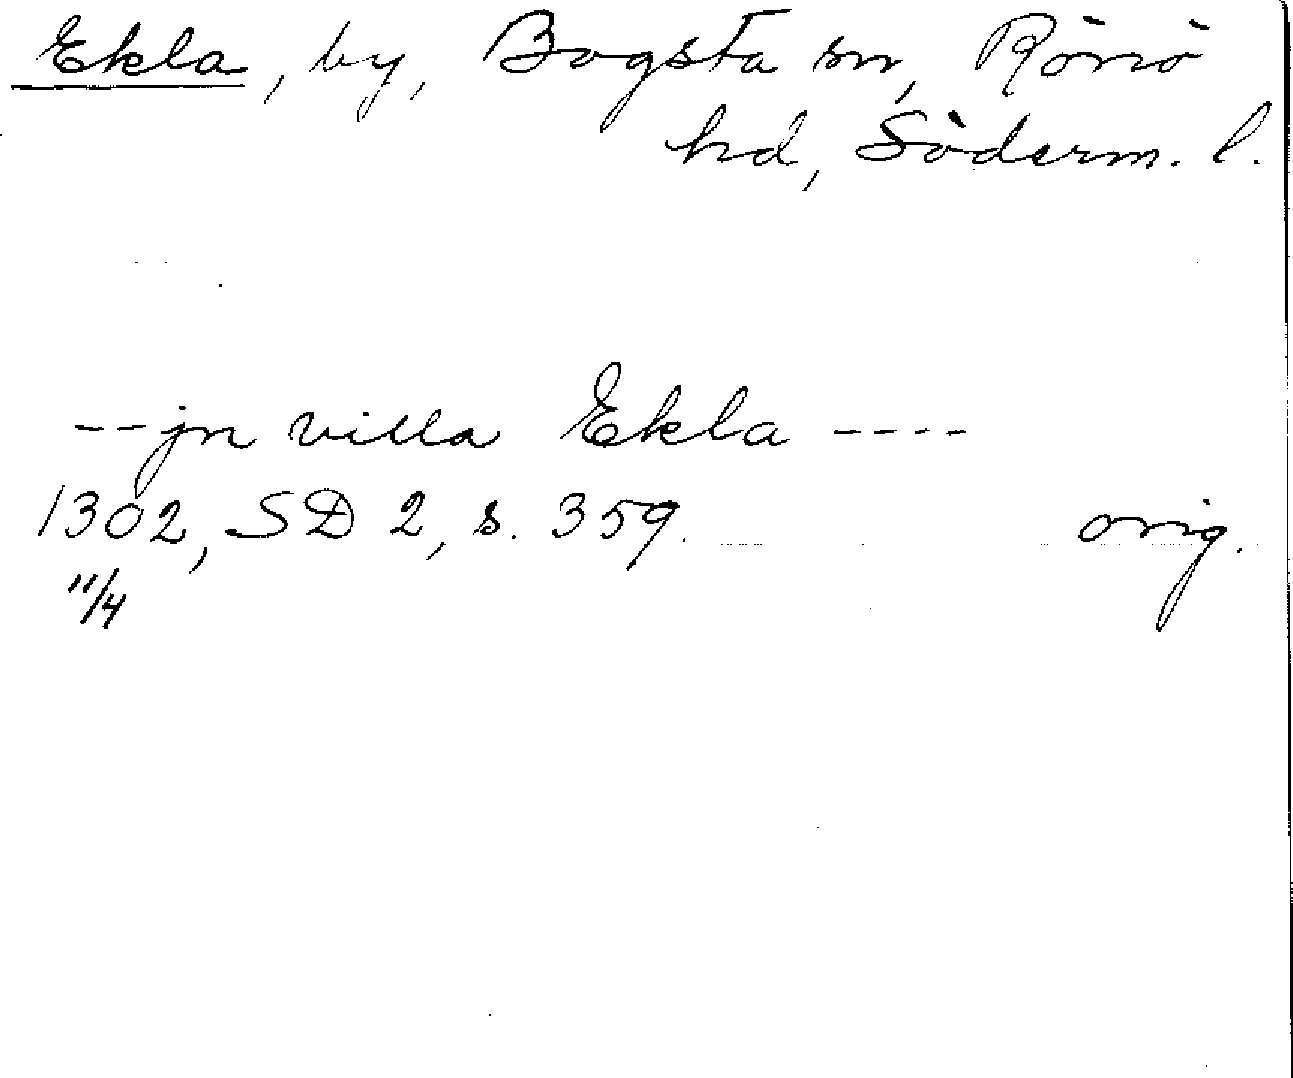 Ekla, by, Bogsta sn, Rönö
hd, Söderm. l.
--jn villa Ekla ----
1302, SD 2, s. 359. orig.
11/4